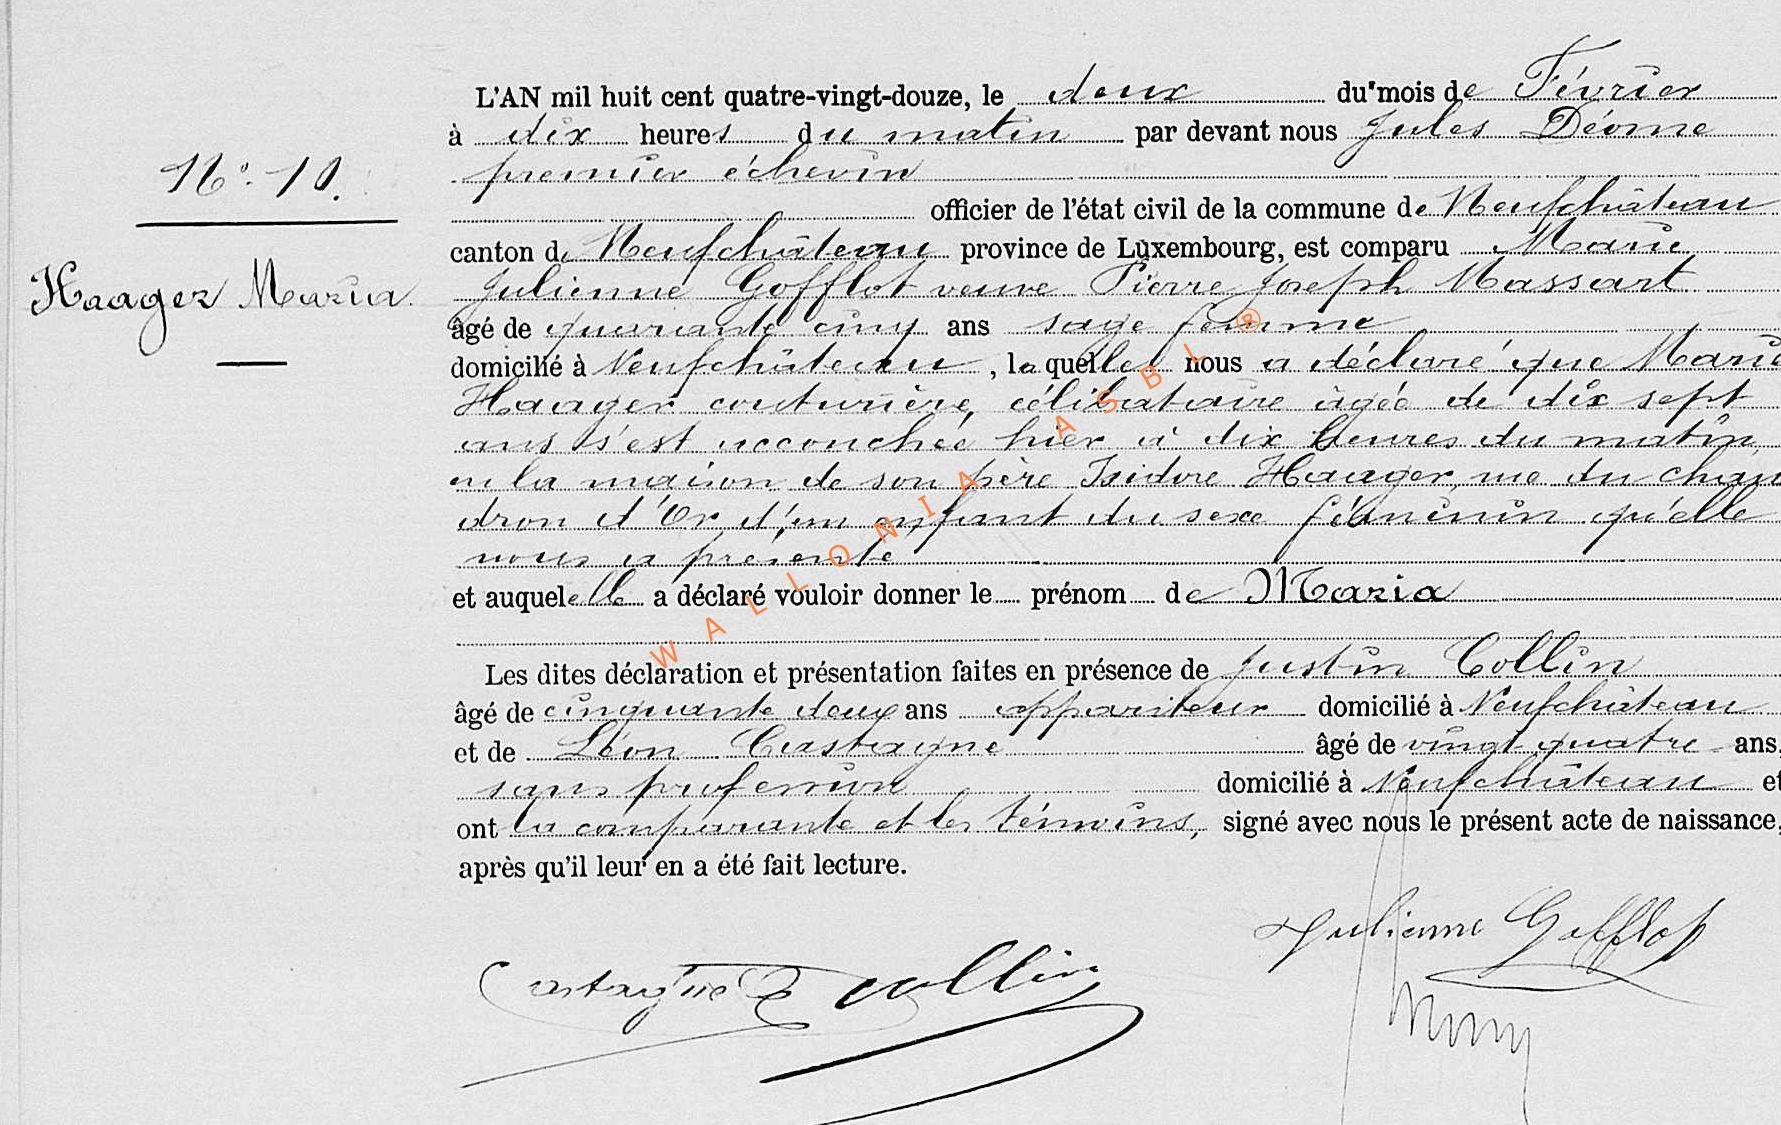 L'AN mil huit cent quatre-vingt-douze, le deux du mois de Février
à dix heures du matin par devant nous Jules Déome
premier échevin
N°. 10.
officier de l'état civil de la commune de Neufchâteau
canton de Neufchâteau province de Luxembourg, est comparu Marie
Haager Maria.
Julienne Gofflot veuve Pierre Joseph Massart
âgé de quarante cinq ans sage femme
domicilié à Neufchâteau, laquelle nous a déclaré que Marie
Haager couturière, célibataire âgée de dix sept
ans s'est accouchée hier à dix heures du matin,
en la maison de son père Isidore Haager, rue du chau
dron d'Or d'un enfant du sexe féminin qu'elle
nous a présenté
et auquel elle a déclaré vouloir donner le prénom de Maria
Les dites déclaration et présentation faites en présence de Justin Collin
âgé de cinquante deux ans appariteur domicilié à Neufchâteau
et de Léon Castagne âgé de vingt quatre ans,
sans profession domicilié à Neufchâteau et
ont la comparante et les témoins, signé avec nous le présent acte de naissance,
après qu'il leur en a été fait lecture.
Julienne Gofflot
Castagne L Collin
WALLONIA ASBL ®